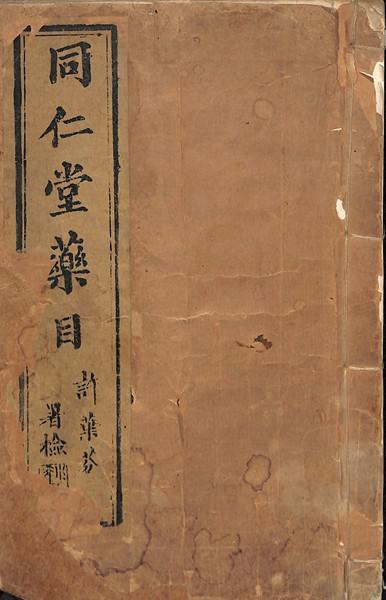 同仁堂藥目
許葉芬
署檢